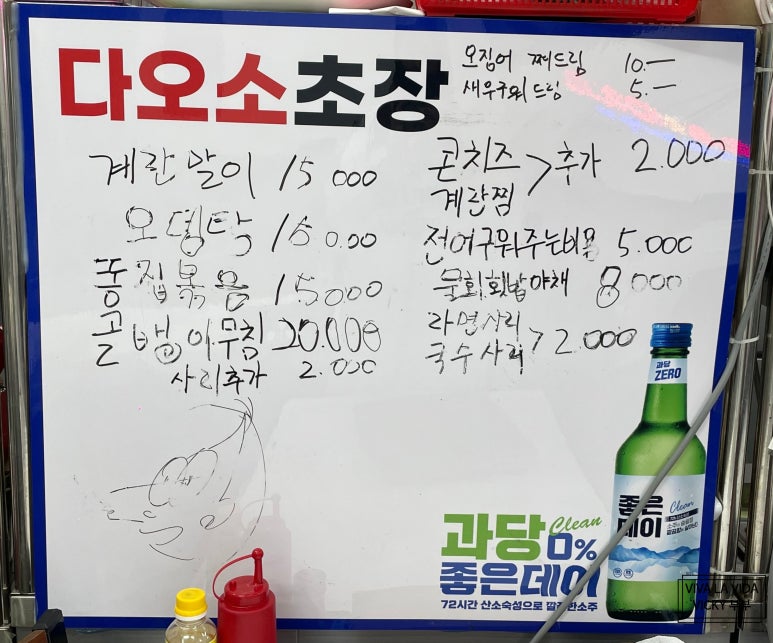 다오소초장
오징어 쪄드림 10.-
새우구워드림 5.-
계란말이 15000
오뎅탕 150.00
똥집볶음 15000
골뱅이무침 20.000
사리추가 2.000
콘치즈
계란찜 > 추가 2.000
전어구워주는비용 5.000
물회회밥야채 8000
라면사리
국수사리 > 2.000
과당 ZERO
좋은데이 Clean
과당 Clean 0%
좋은데이
72시간 산소숙성으로 깔끔한소주
VIVA LA VIDA